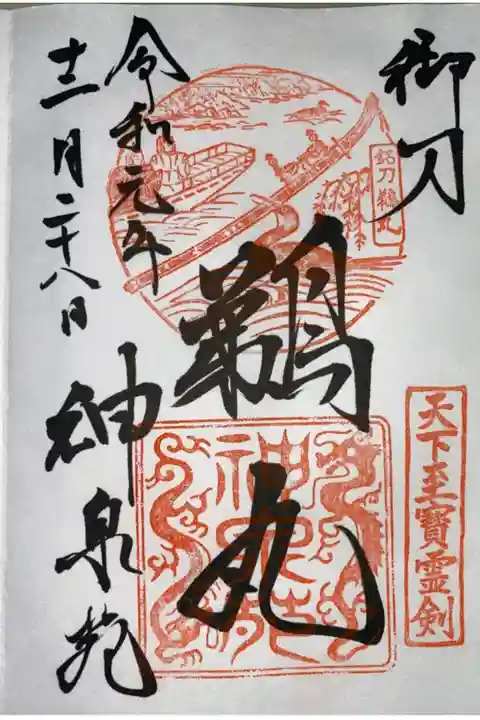 御刀
天下至寳霊剣
銘刀鵜丸
鵜丸
神泉苑
令和元年
十二月二十八日
神泉苑